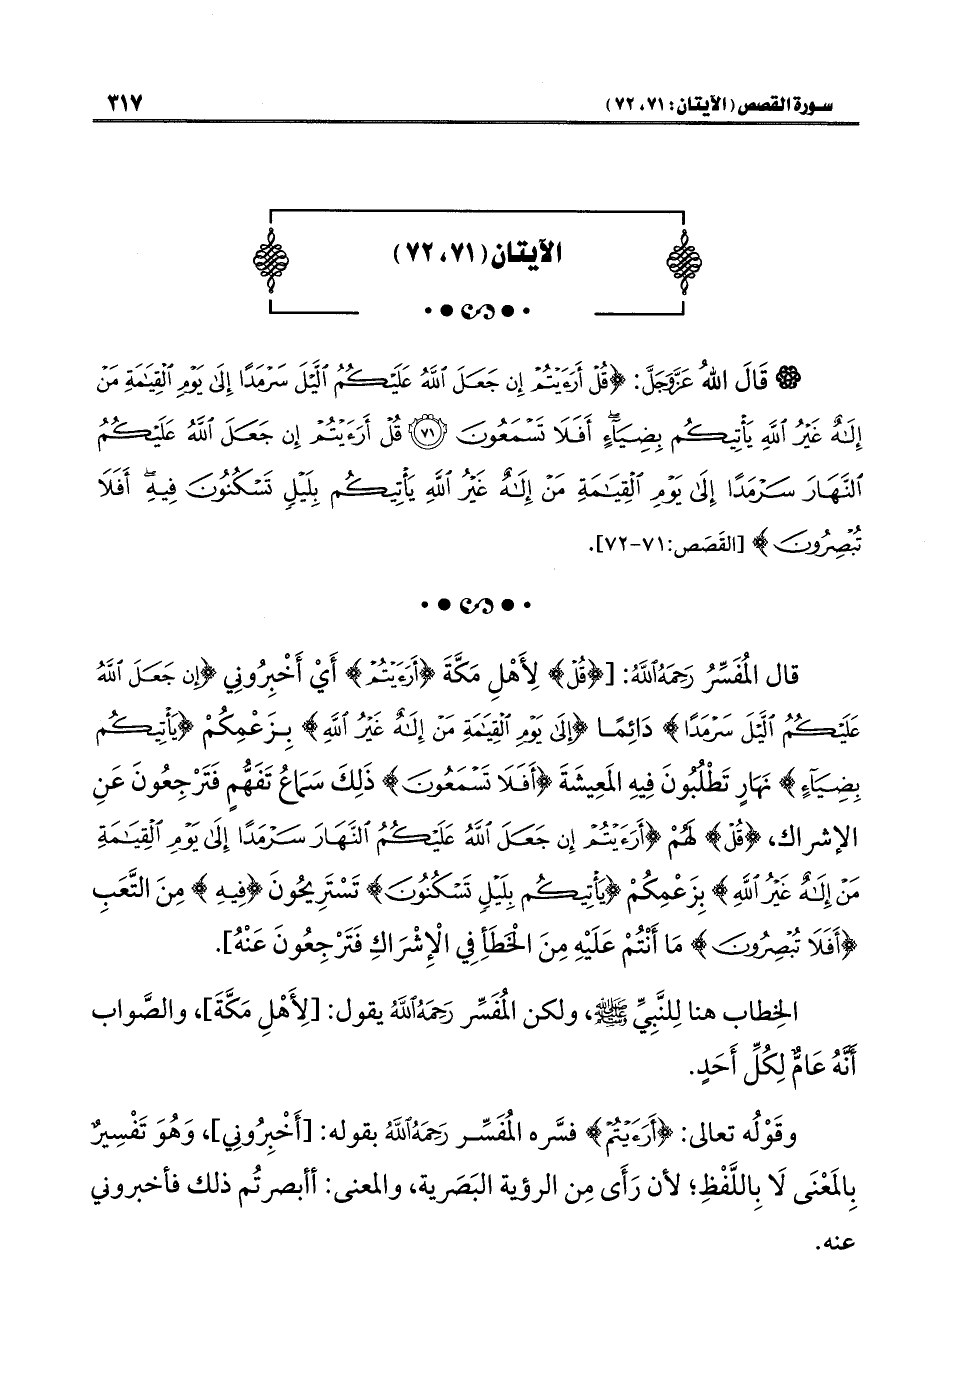 سورة القصص (الآيتان: ٧١، ٧٢) ٣١٧
الآيتان (٧١، ٧٢)
قَالَ اللهُ عَزَّوَجَلَّ: ﴿قُلۡ أَرَءَيۡتُمۡ إِن جَعَلَ ٱللَّهُ عَلَيۡكُمُ ٱلَّيۡلَ سَرۡمَدًا إِلَىٰ يَوۡمِ ٱلۡقِيَٰمَةِ مَنۡ
إِلَٰهٌ غَيۡرُ ٱللَّهِ يَأۡتِيكُم بِضِيَآءٍۚ أَفَلَا تَسۡمَعُونَ ٧١ قُلۡ أَرَءَيۡتُمۡ إِن جَعَلَ ٱللَّهُ عَلَيۡكُمُ
ٱلنَّهَارَ سَرۡمَدًا إِلَىٰ يَوۡمِ ٱلۡقِيَٰمَةِ مَنۡ إِلَٰهٌ غَيۡرُ ٱللَّهِ يَأۡتِيكُم بِلَيۡلٖ تَسۡكُنُونَ فِيهِۚ أَفَلَا
تُبۡصِرُونَ﴾ [القَصَص: ٧١-٧٢].
قال المُفَسِّرُ رَحِمَهُ اللَّهُ: [﴿قُلۡ﴾ لِأَهْلِ مَكَّةَ ﴿أَرَءَيۡتُمۡ﴾ أَيْ أَخْبِرُونِي ﴿إِن جَعَلَ ٱللَّهُ
عَلَيۡكُمُ ٱلَّيۡلَ سَرۡمَدًا﴾ دَائِمًا ﴿إِلَىٰ يَوۡمِ ٱلۡقِيَٰمَةِ مَنۡ إِلَٰهٌ غَيۡرُ ٱللَّهِ﴾ بِزَعْمِكُمْ ﴿يَأۡتِيكُم
بِضِيَآءٍ﴾ نَهَارٍ تَطْلُبُونَ فِيهِ المَعِيشَةَ ﴿أَفَلَا تَسۡمَعُونَ﴾ ذَلِكَ سَمَاعُ تَفَهُّمٍ فَتَرْجِعُونَ عَنِ
الإشراك، ﴿قُلۡ﴾ لَهُمْ ﴿أَرَءَيۡتُمۡ إِن جَعَلَ ٱللَّهُ عَلَيۡكُمُ ٱلنَّهَارَ سَرۡمَدًا إِلَىٰ يَوۡمِ ٱلۡقِيَٰمَةِ
مَنۡ إِلَٰهٌ غَيۡرُ ٱللَّهِ﴾ بِزَعْمِكُمْ ﴿يَأۡتِيكُم بِلَيۡلٖ تَسۡكُنُونَ﴾ تَسْتَرِيحُونَ ﴿فِيهِ﴾ مِنَ التَّعَبِ
﴿أَفَلَا تُبۡصِرُونَ﴾ مَا أَنْتُمْ عَلَيْهِ مِنَ الخَطَأِ فِي الْإِشْرَاكِ فَتَرْجِعُونَ عَنْهُ].
الخِطاب هنا لِلنَّبِيِّ ﷺ، ولكن المُفَسِّر رَحِمَهُ اللَّهُ يقول: [لِأَهْلِ مَكَّةَ]، والصَّواب
أَنَّهُ عَامٌّ لِكُلِّ أَحَدٍ.
وقَوْلُه تعالى: ﴿أَرَءَيۡتُمۡ﴾ فسَّره المُفَسِّر رَحِمَهُ اللَّهُ بقوله: [أَخْبِرُونِي]، وَهُوَ تَفْسِيرٌ
بِالمَعْنَى لَا بِاللَّفْظِ؛ لأن رَأَى مِن الرؤية البَصَرية، والمعنى: أأبصرتُم ذلك فأخبروني
عنه.